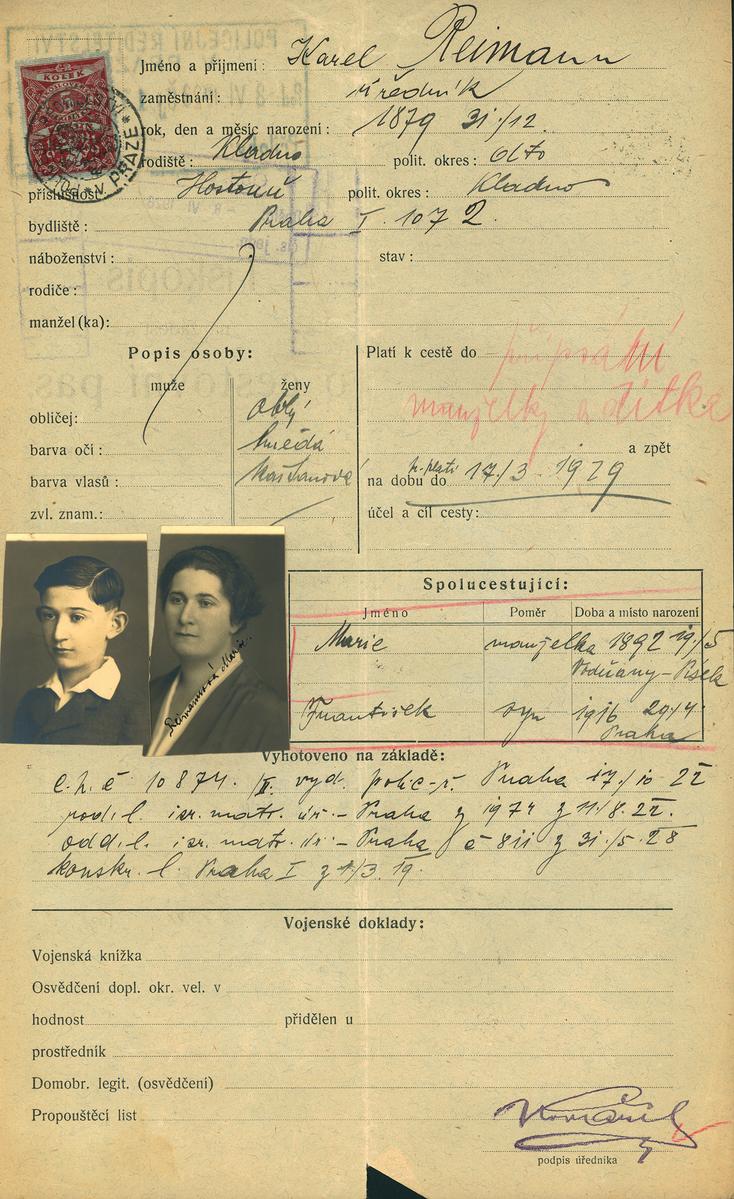 KOLEK
PRAZE
Jméno a příjmení: Karel Reimann
zaměstnání: úředník
rok, den a měsíc narození: 1879 31./12.
rodiště: Kladno polit. okres: dtto
příslušnost: Hostouň polit. okres: Kladno
bydliště: Praha I. 1072
náboženství: stav:
rodiče:
manžel (ka):
Popis osoby:
muže ženy
obličej: oblý
barva očí: hnědá
barva vlasů: kaštanová
zvl. znam.:
Platí k cestě do připsání
manželky a dítka
a zpět
na dobu do 17/3 1929
účel a cíl cesty:
Reimannová Marie.
Spolucestující:
Jméno Poměr Doba a místo narození
Marie manželka 1892 19/5
Vodňany-Písek
František syn 1916 29/4
Praha
Vyhotoveno na základě:
c.p. č 10874 /II. vyd. polic-ř. Praha 17/10 22
rod. l. isr. matr. úř. - Praha z 11/8. 22.
odd. l. isr. matr. úř. - Praha č 811 z 31./5. 28
konskr. l. Praha I z 1/3. 19.
Vojenské doklady:
Vojenská knížka
Osvědčení dopl. okr. vel. v
hodnost přidělen u
prostředník
Domobr. legit. (osvědčení)
Propouštěcí list
podpis úředníka